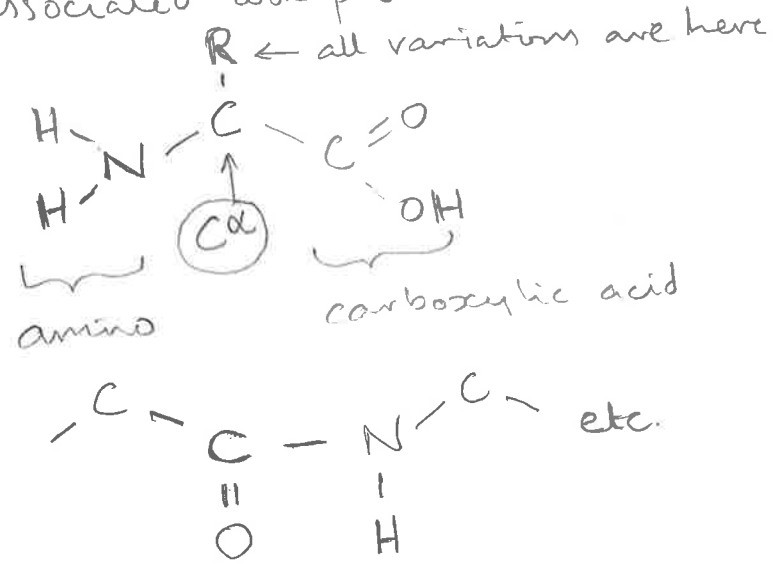 ssociated
R ← all variations are here
H
C
C = O
N
H
OH
Cα
amino
carboxylic acid
C
C
etc.
C – N
O
H